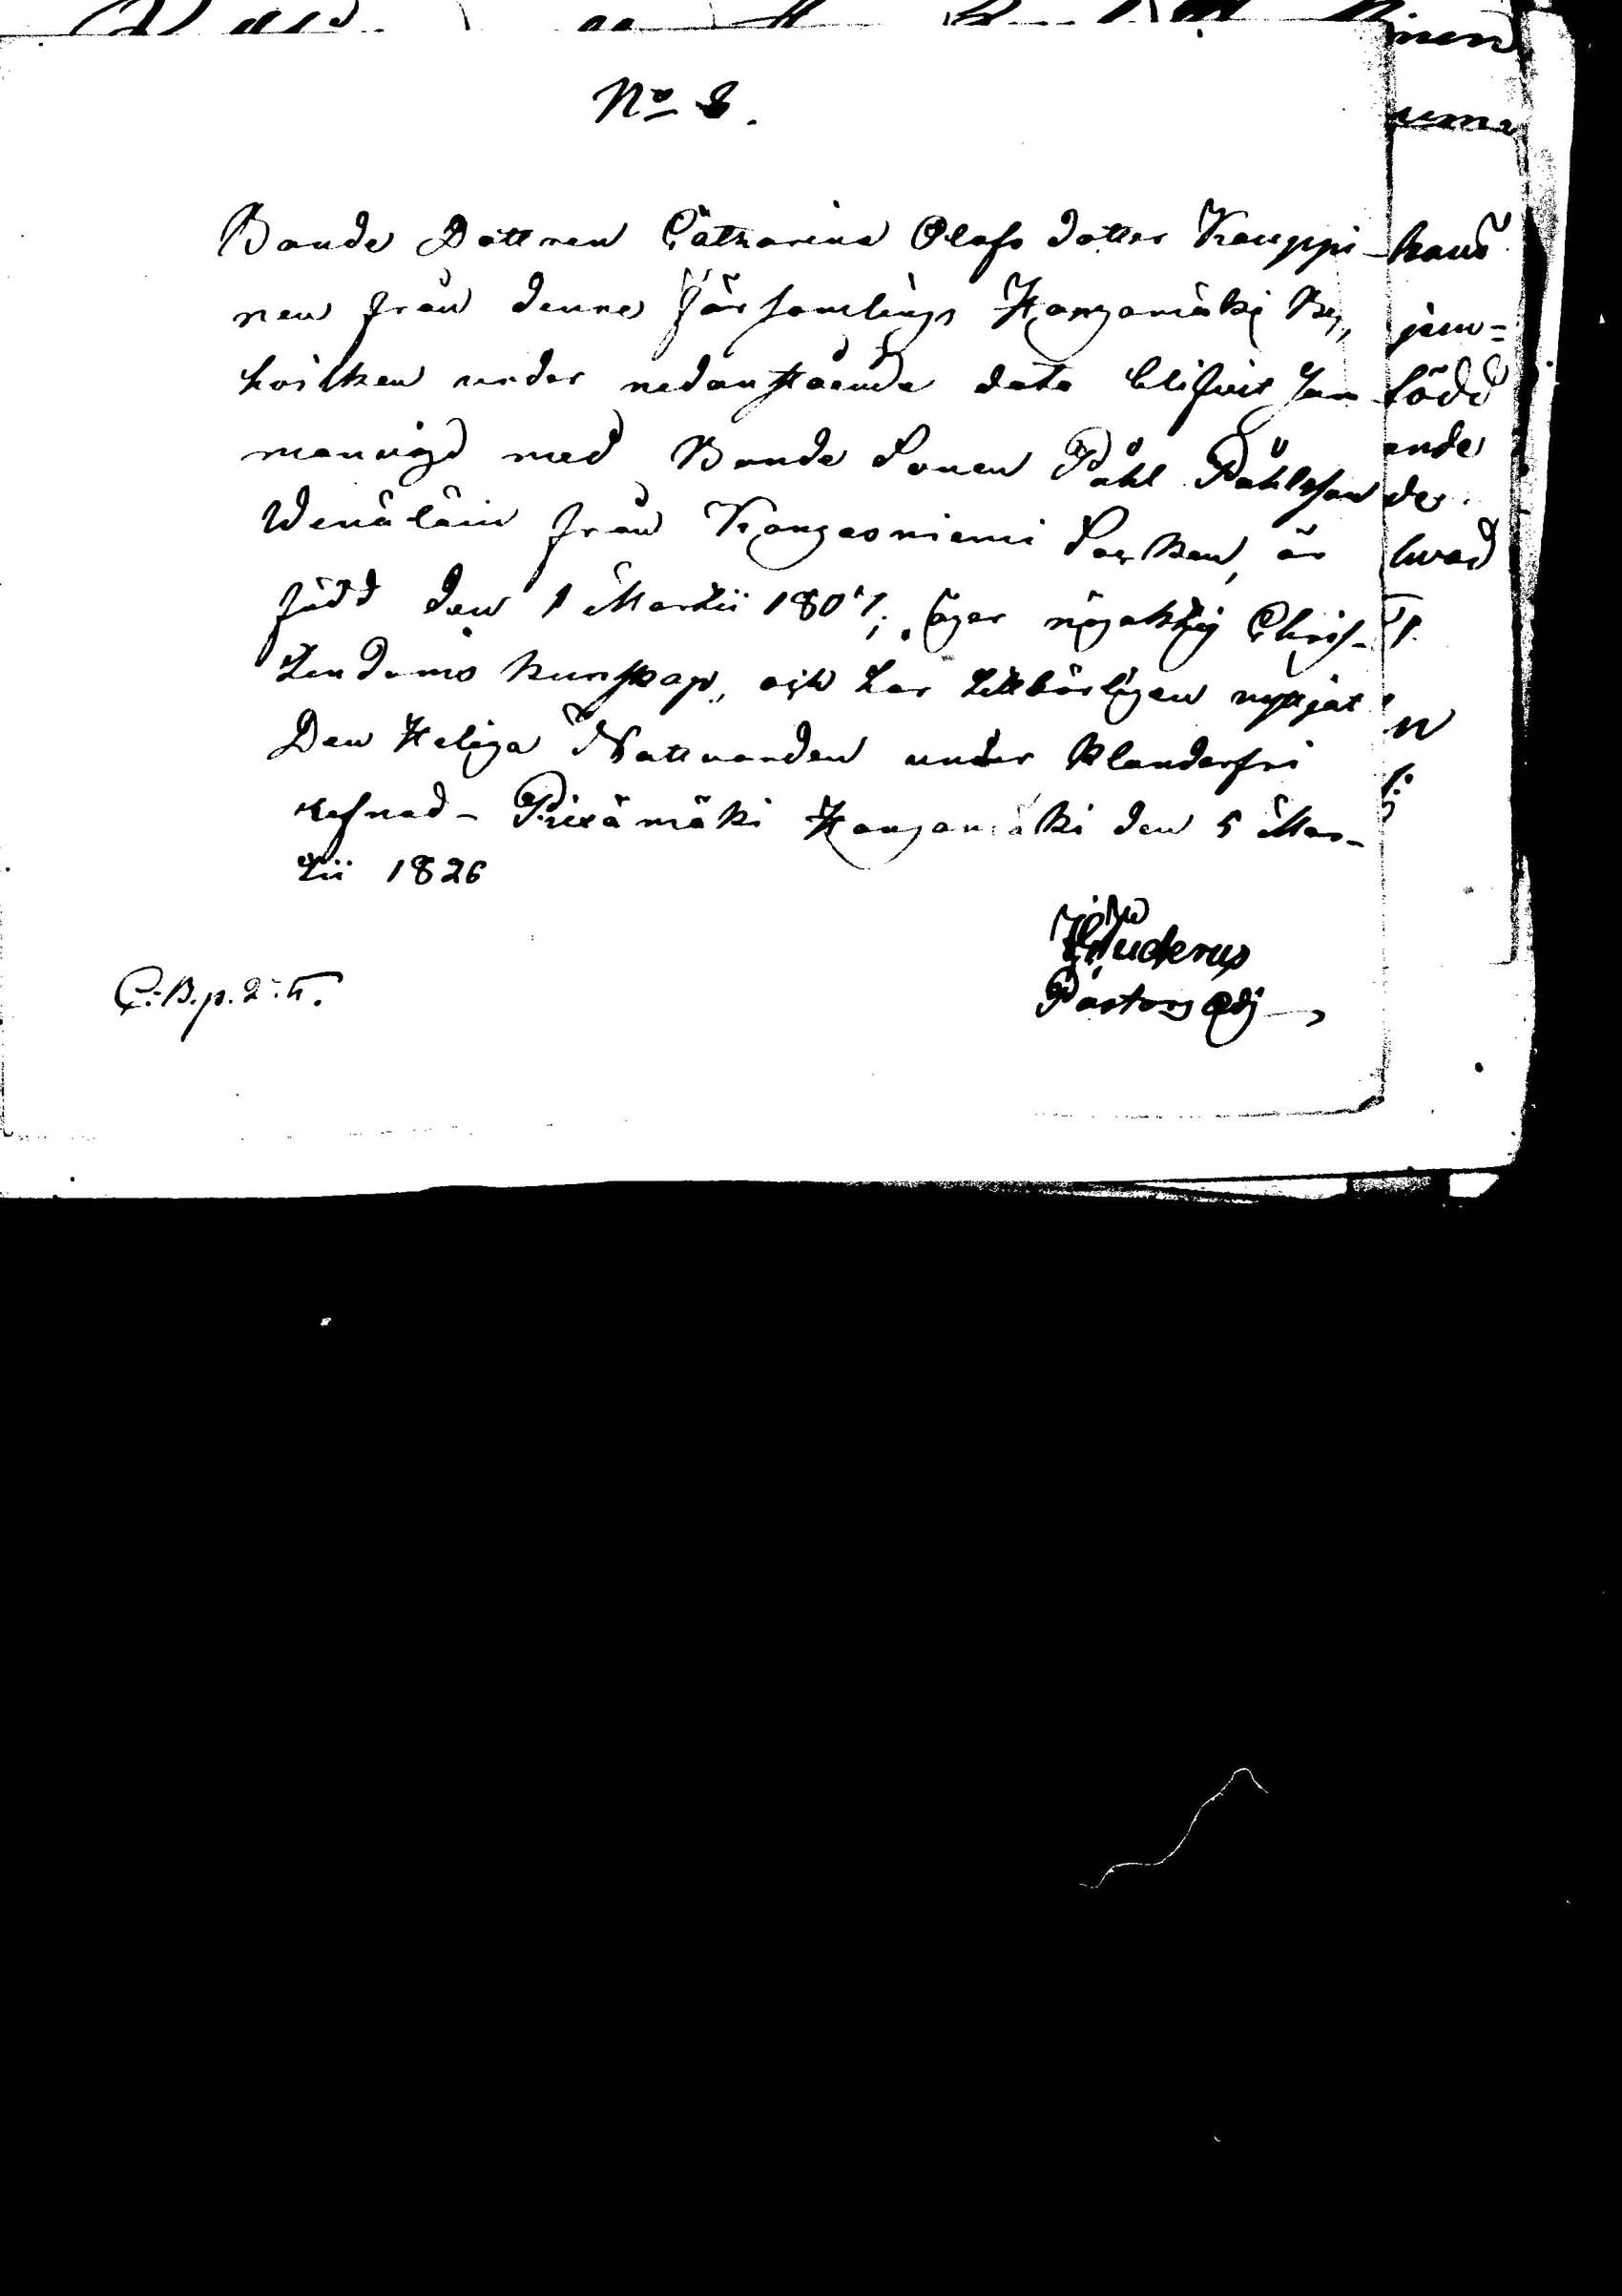 No 8.
Bonde Dottren Catharina Olafs dotter Kauppi-
nen från denne Församlings Hangamäki By,
hvilken under nedanstående dato blifvit Sam
manvigd med Bonde Sonen Påhl Påhlsson
Wenäläin från Kangasniemi Socken, är
född den 1 Martii 1807; äger nögaktig Chris-
tendoms kunskap, och har tillbörligen nyttjat
Den Heliga Nattvarden under klanderfri
vefnad - Piexämäki Hangamäki den 5 Mar-
tii 1826
Pastors Adj
C.B.p.
hans
jem=
född
ande
der
hvad